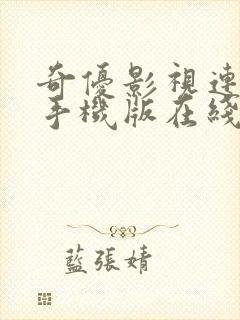 奇優影視連
手機版在綫
藍張婧